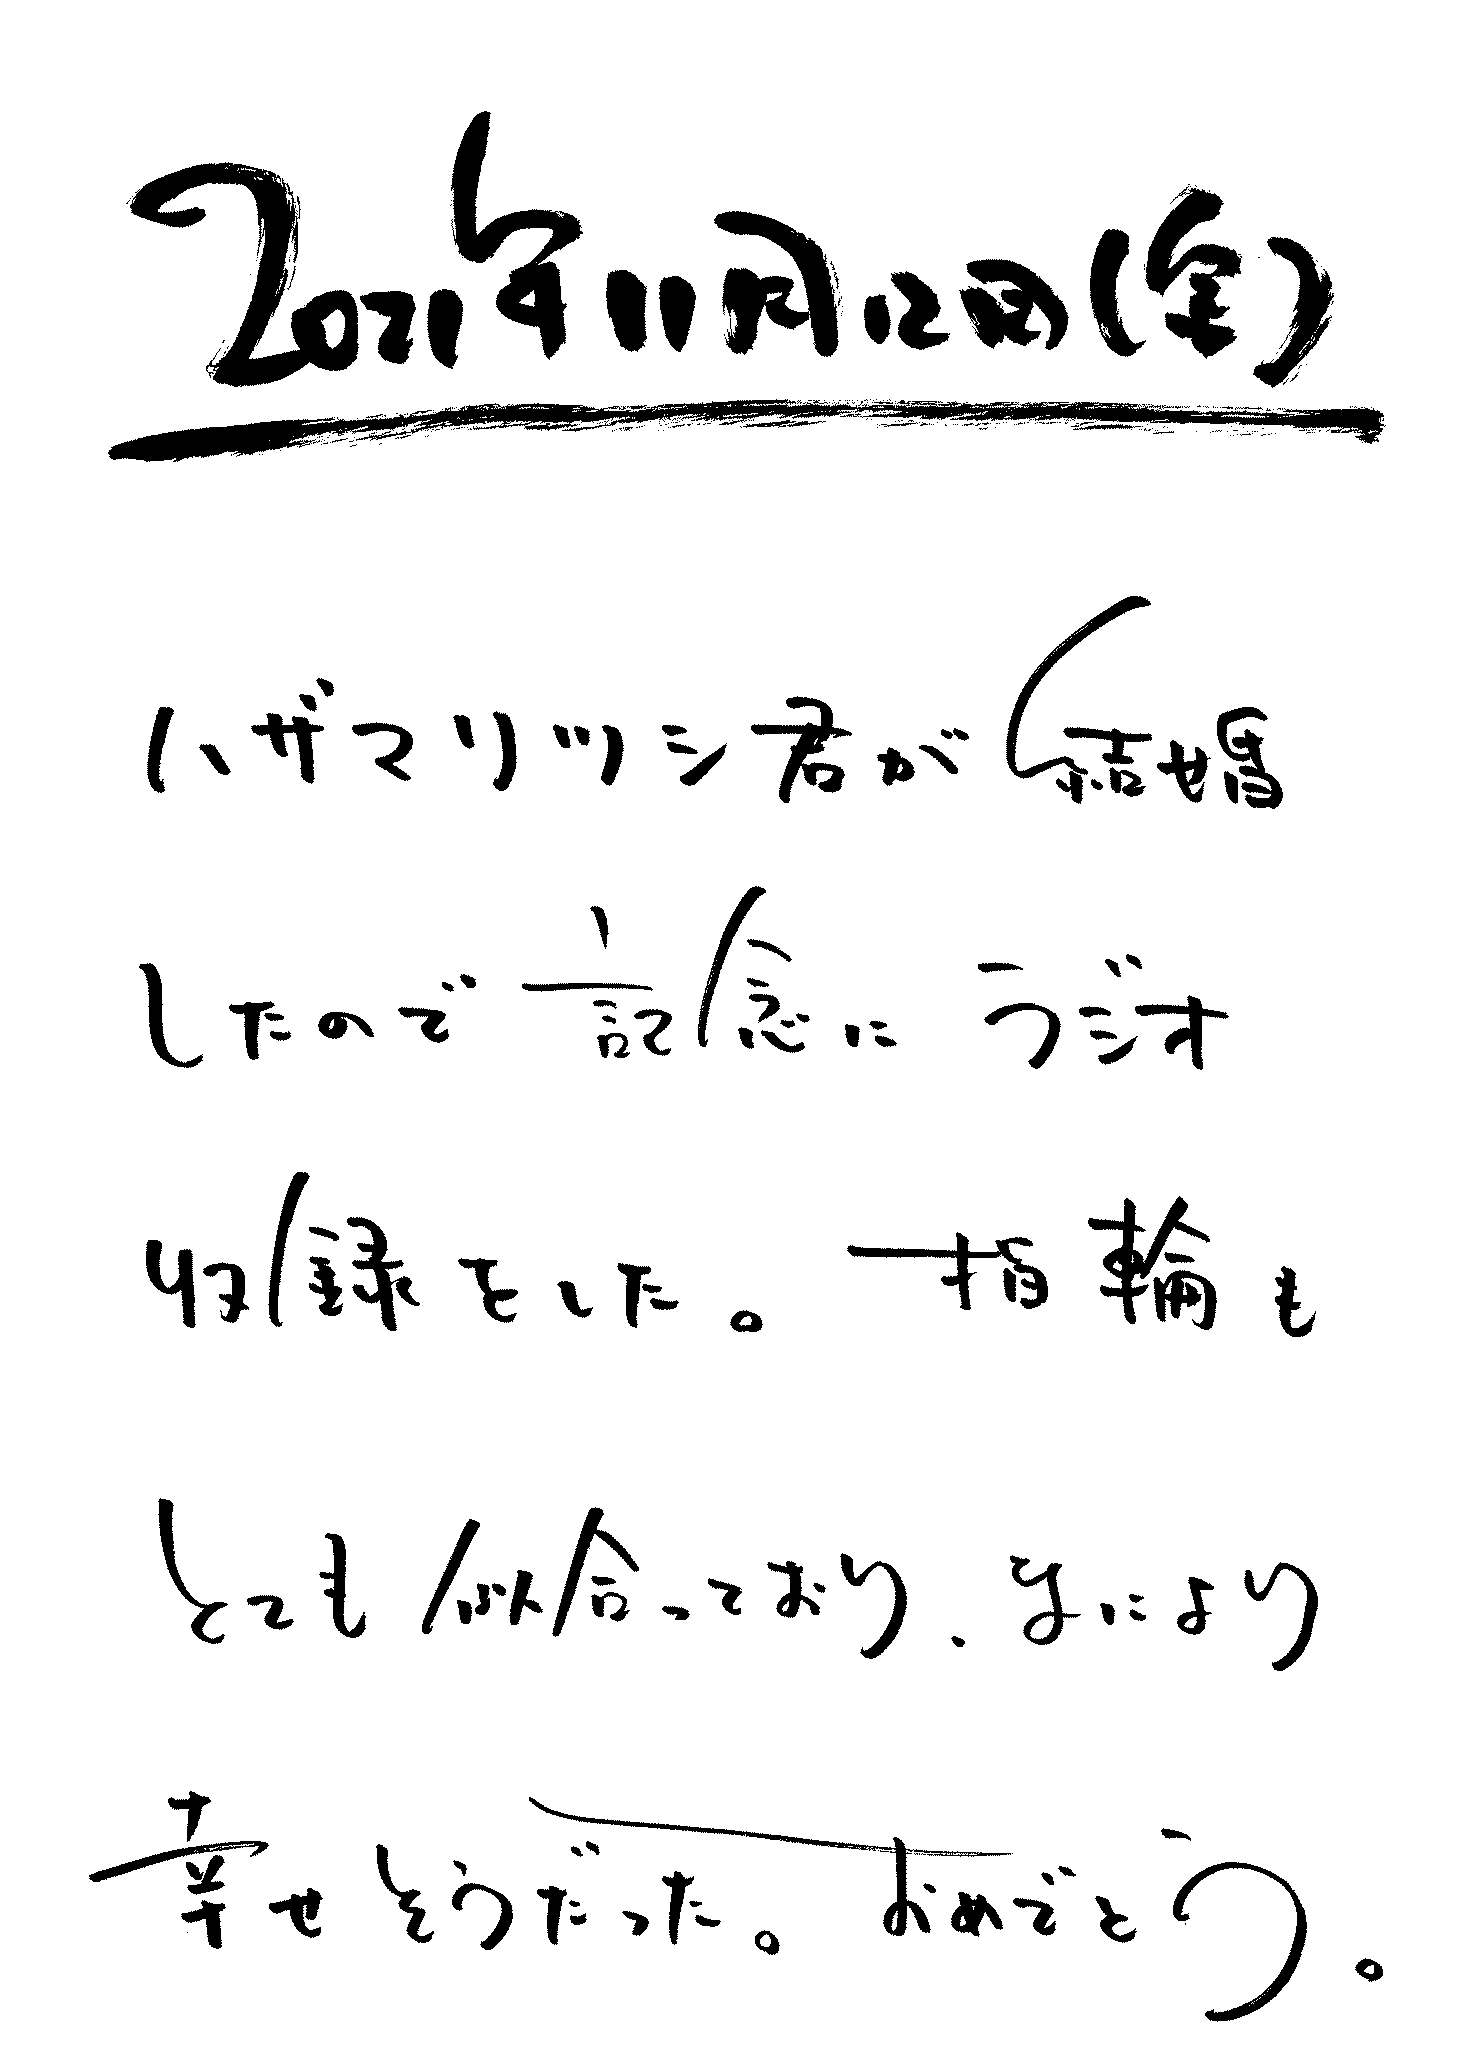 2021年11月12日(金)
ハザマリツシ君が結婚
したので記念にラジオ
収録をした。指輪も
とても似合っており、なにより
幸せそうだった。おめでとう。